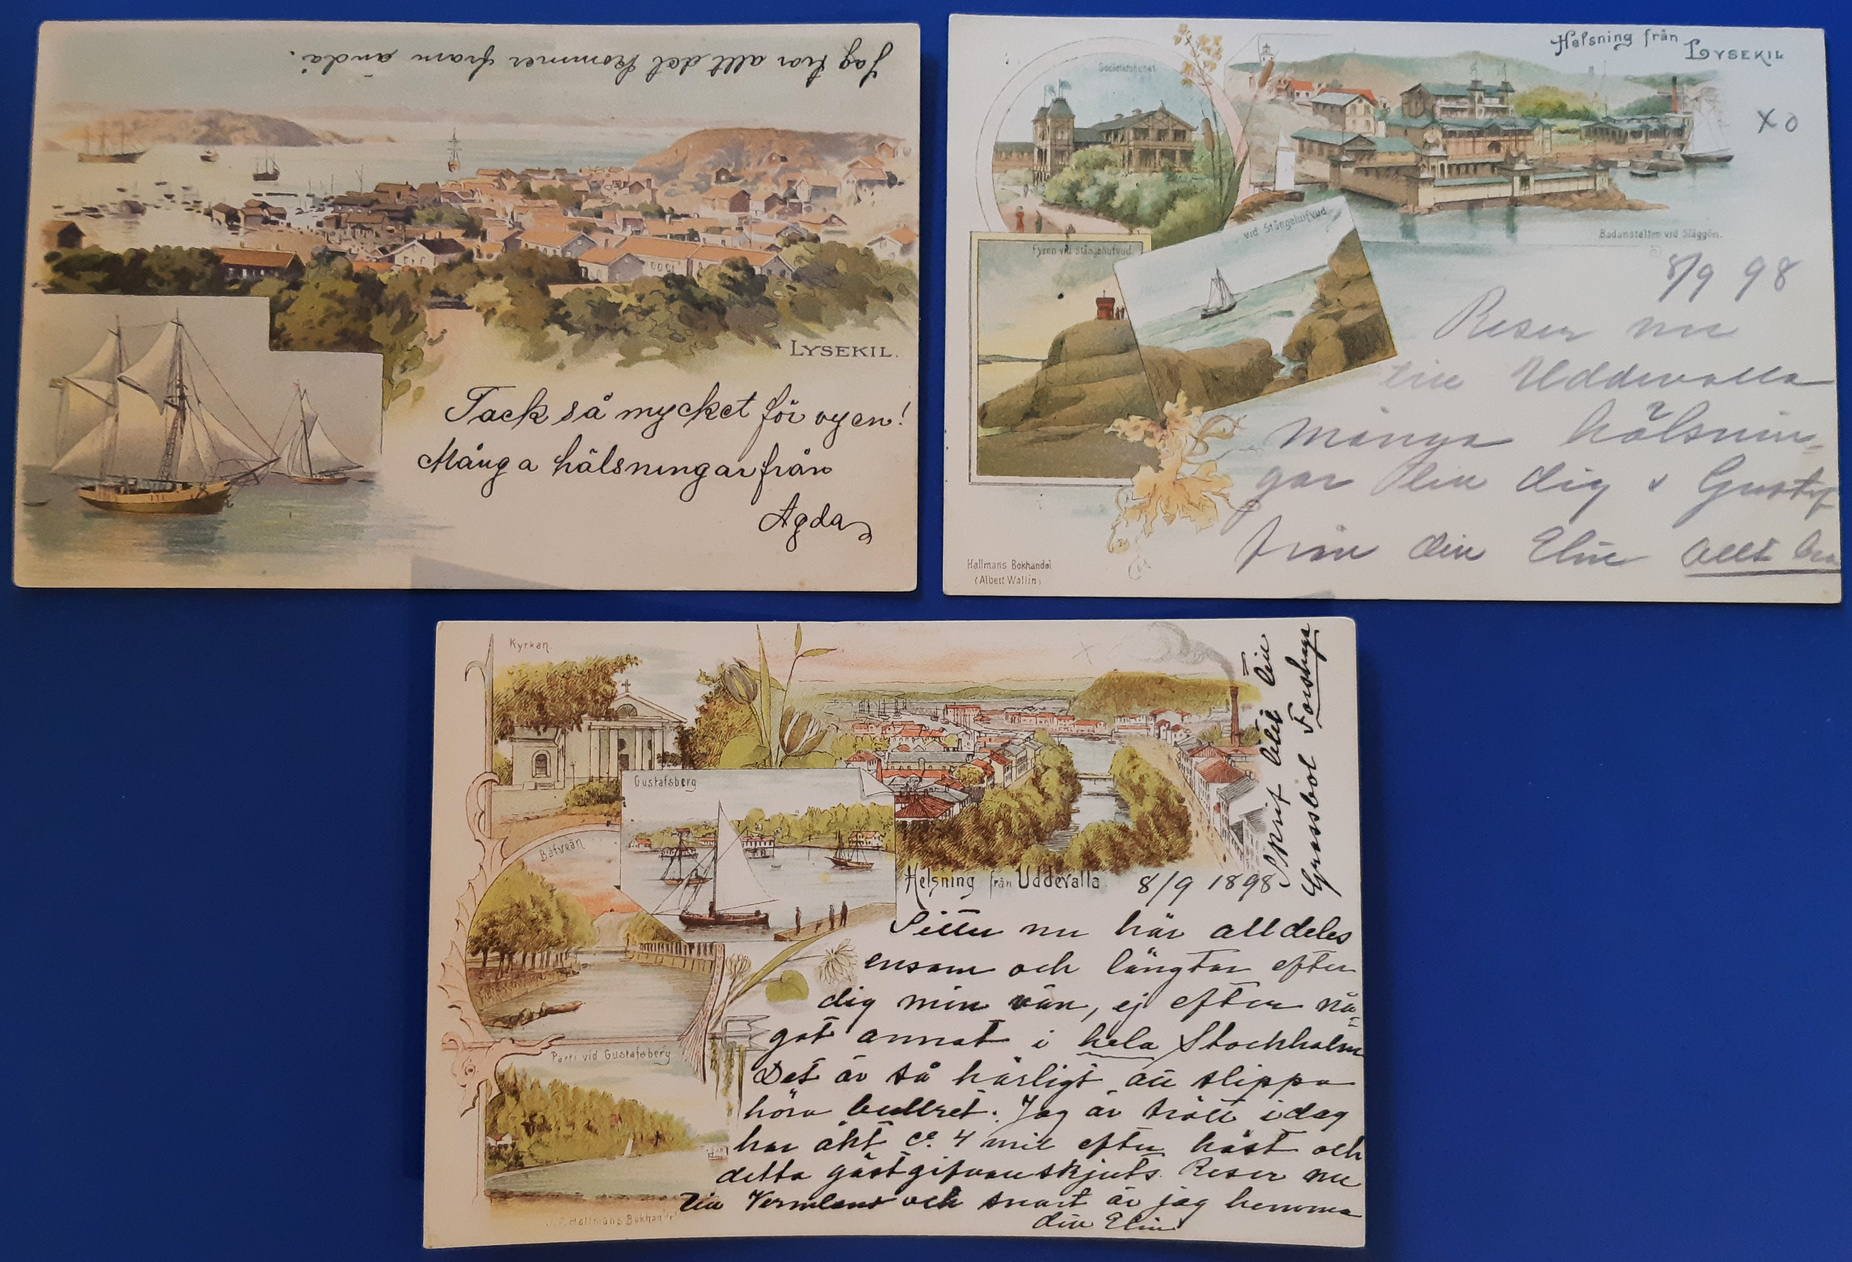 Jag har allt det kommer fram ändå.
LYSEKIL.
Tack så mycket för vyen!
Många hälsningar från
Agda
Helsning från LYSEKIL
Societetshuset
XO
Badanstalten vid Släggön.
vid Stångehufvud
Fyren vid Stångehufvud.
8/9 98
Reser nu
till Uddevalla
många hälsnin-
gar till dig & Gustaf
från din Elin allt bra
Hallmans Bokhandel
(Albert Wallin)
Kyrkan
Gustafsberg
Båtveån
Parti vid Gustafsberg
Helsning från Uddevalla
8/9 1898
Sitter nu här alldeles
ensam och längtar efter
dig min vän, ej efter nå-
got annat i hela Stockholm
Det är så härligt att slippa
höra bullret. Jag är trött i dag
har åkt ca 4 mil efter häst och
detta gästgifvareskjuts. Reser nu
till Vermland och snart är jag hemma
din Elin
Skrif till
Grässbol Forshaga
Hallmans Bokhandel